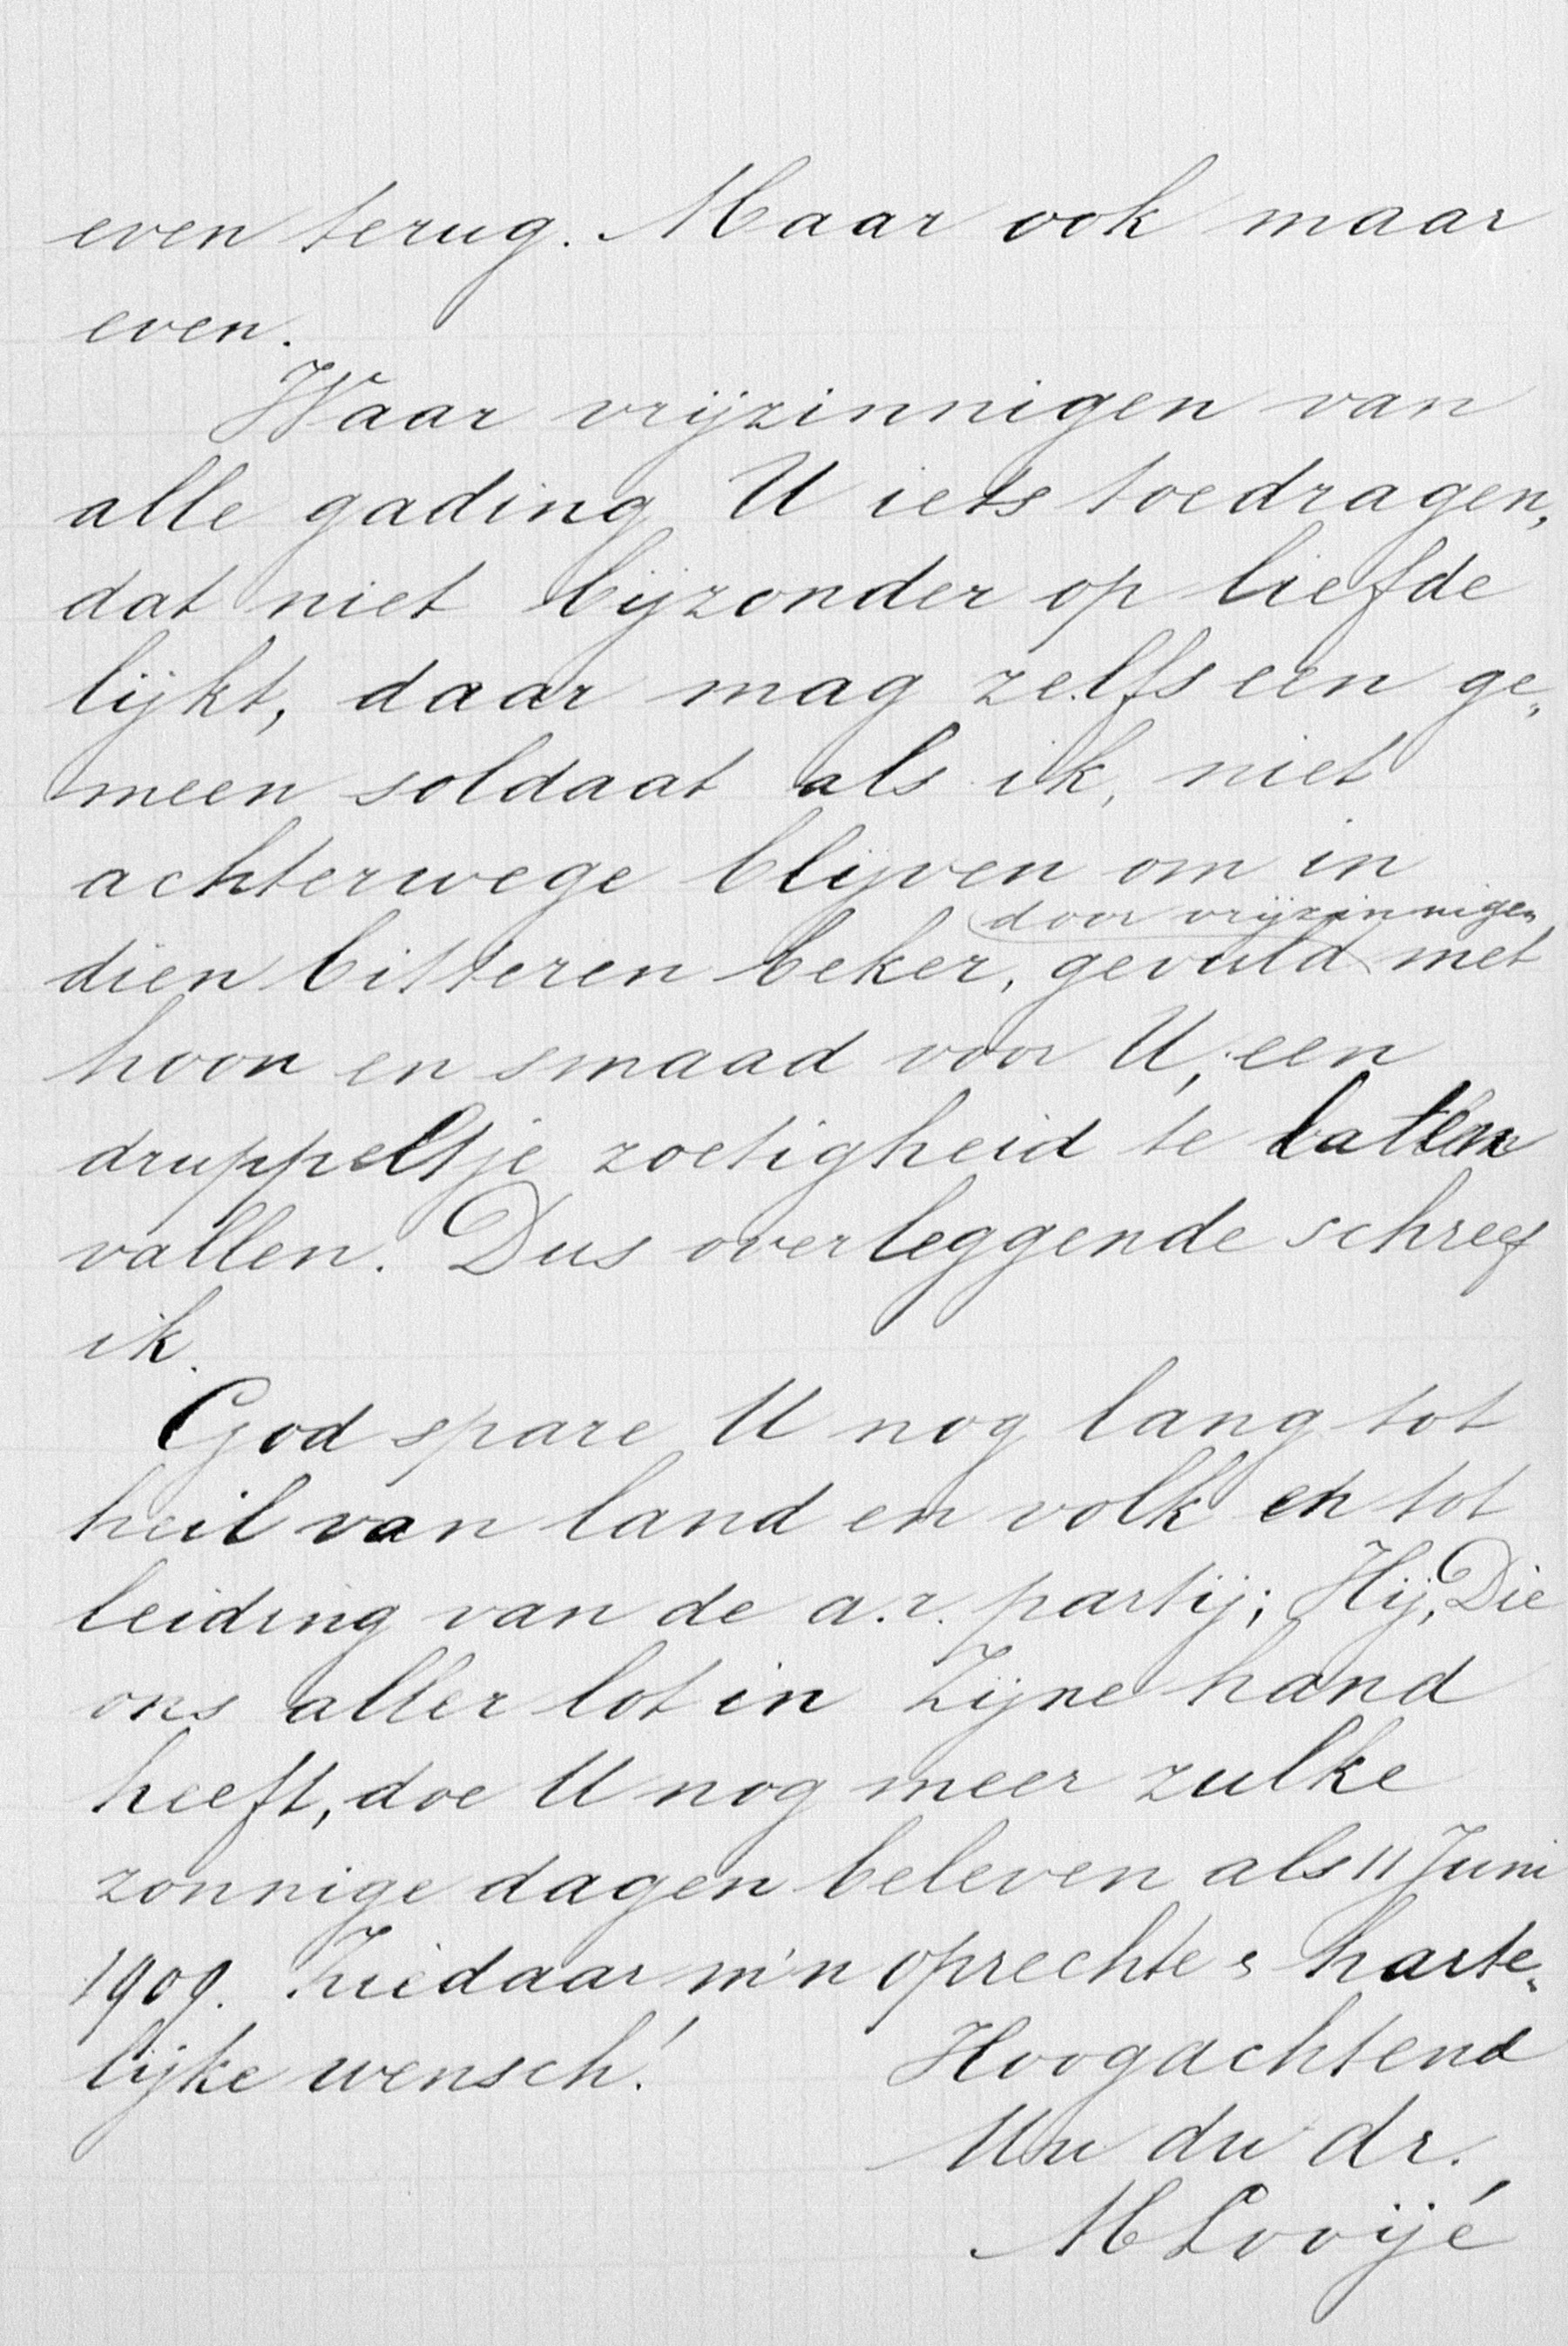 even terug. Maar ook maar
even.
Waar vrijzinnigen van
alle gading U iets toedragen,
dat niet bijzonder op liefde
lijkt, daar mag zelfs een ge„
meen soldaat als ik, niet
achterwege blijven om in
door vrijzinnigen
dien bitteren beker, gevuld met
hoon en smaad voor U, een
druppeltje zoetigheid te laten
vallen. Dus overleggende schreef
ik.
God spare U nog lang tot
heil van land en volk en tot
leiding van de a.r. partij; Hij, Die
ons aller lot in Zijne hand
heeft, doe U nog meer zulke
zonnige dagen beleven als 11 Juni
1909. Ziedaar m'n oprechte & harte„
lijke wensch!
Hoogachtend
Uw dw dr.
M Looijé